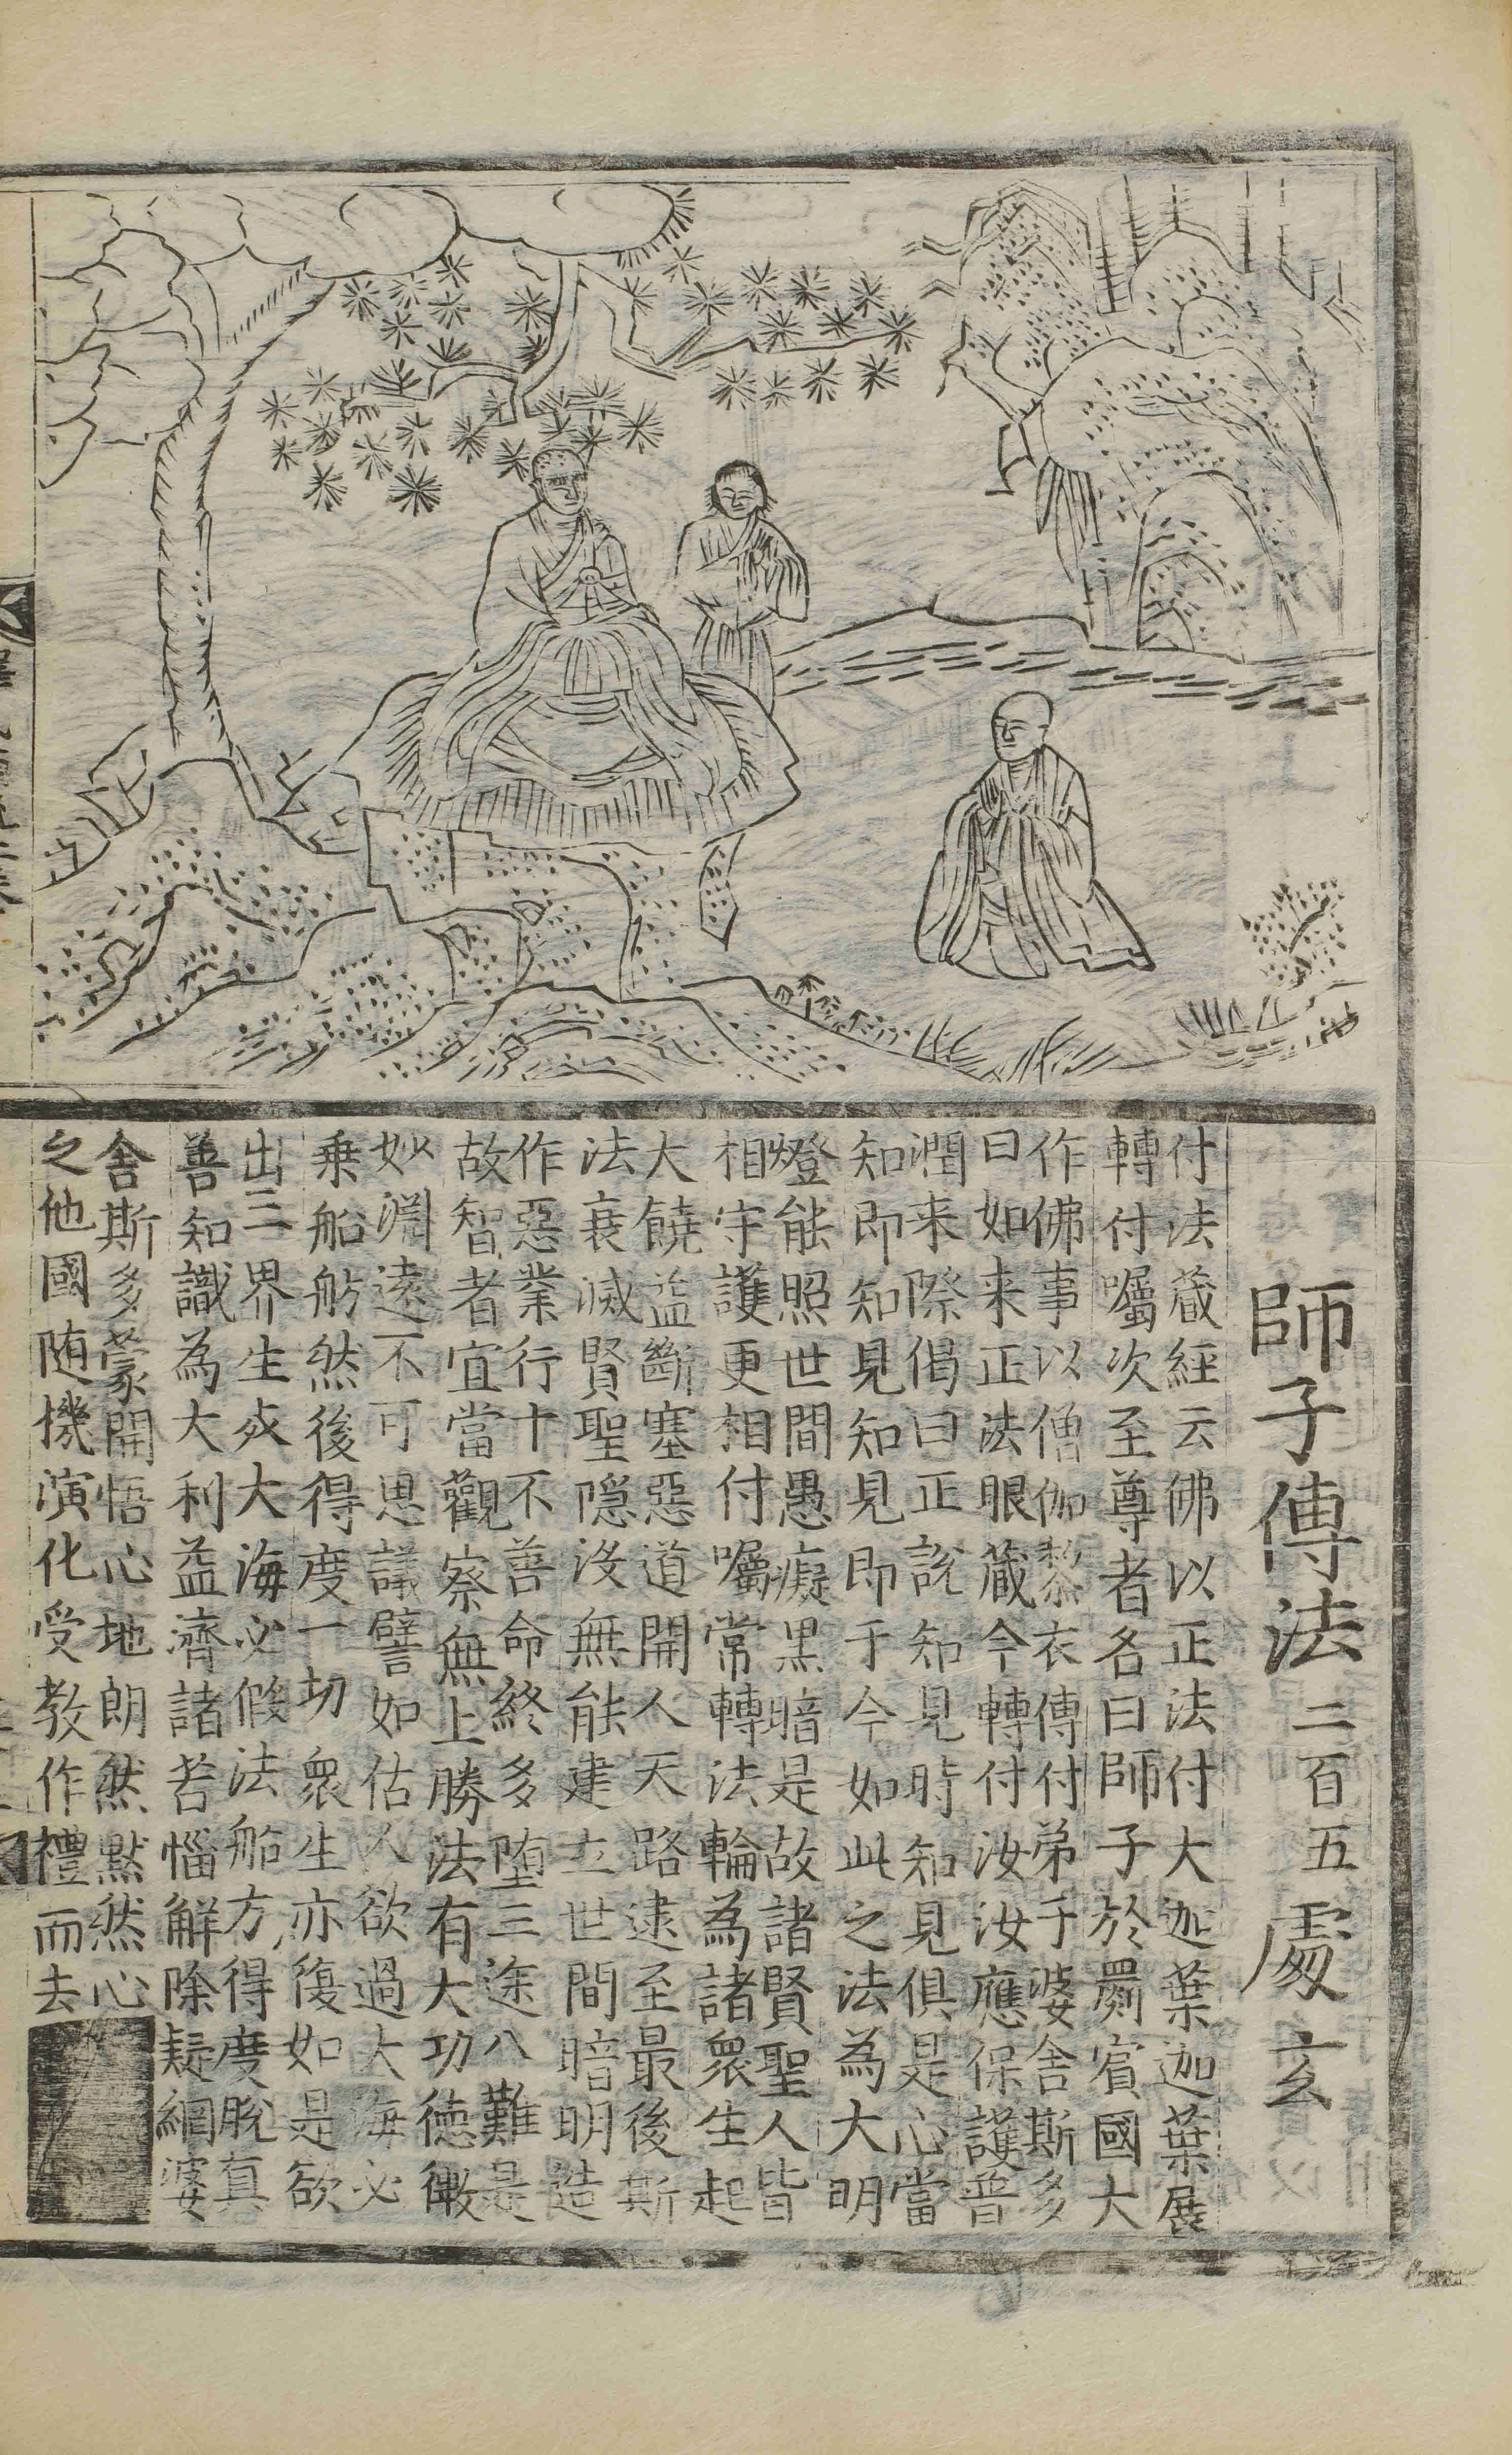 師子傳法 二百五 處玄
付法藏經云佛以正法付大迦葉迦葉展
轉付囑次至尊者名曰師子於罽賓國大
作佛事以僧伽黎衣傳付弟子婆舍斯多
曰如来正法眼藏今轉付汝汝應保護普
潤来際偈曰正說知見時知見俱是心當
知即知見知見即于今如此之法為大明
燈能照世間愚癡黒暗是故諸賢聖人皆
相守護更相付囑常轉法輪為諸衆生起
大饒益斷塞惡道開人天路逮至最後斯
法衰滅賢聖隱沒無能建立世間暗明造
作惡業行十不善命終多墮三途八難是
故智者宜當觀察無上勝法有大功德微
妙淵遠不可思議譬如估人欲過大海必
乗船舫然後得度一切衆生亦復如是欲
出三界生死大海必假法船方得度脫真
善知識為大利益濟諸苦惱解除疑網婆
舍斯多蒙開悟心地朗然黙然心
之他國随機演化受教作禮而去